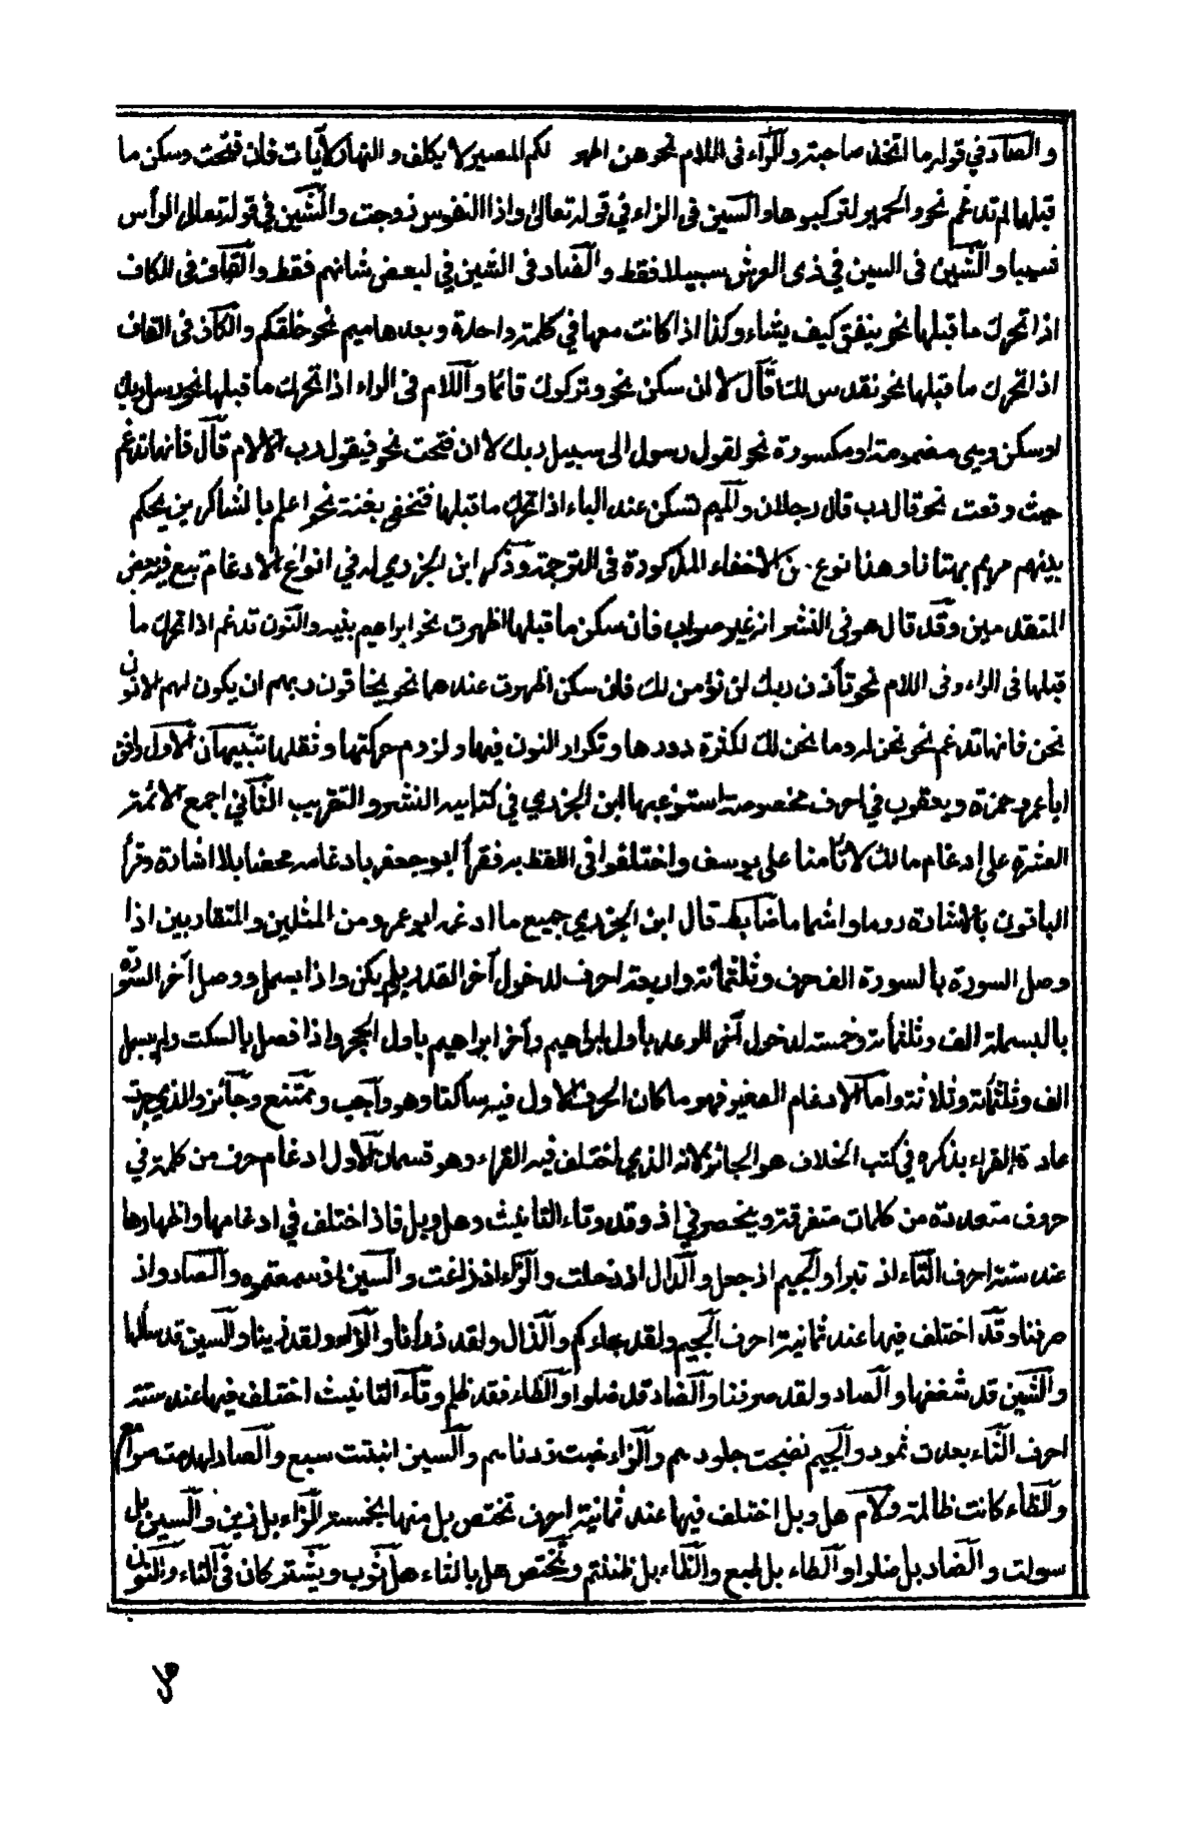 والصاد في قوله ما اتخذ صاحبة والراء في اللام نحو هن اطهر لكم المصير لا يكلف والنهار لآيات فان فتحت وسكن ما
قبلها لم تدغم نحو والحمير لتركبوها والسين في الزاء في قوله تعالى واذا النفوس زوجت والشين في قوله تعالى الرأس
شيبا والشين في السين في ذى العرش سبيلا فقط والضاد في الشين في لبعض شانهم فقط والقاف في الكاف
اذا تحرك ما قبلها نحو ينفق كيف يشاء وكذا اذا كانت معها في كلمة واحدة وبعدها ميم نحو خلقكم والكاف في القاف
اذا تحرك ما قبلها نحو نقدس لك قال لا ان سكن نحو وتركوك قائما واللام في الراء اذا تحرك ما قبلها نحو رسل ربك
او سكن وهى مضمومة او مكسورة نحو لقول رسول الى سبيل ربك لا ان فتحت نحو فيقول رب الا لام قال فانها تدغم
حيث وقعت نحو قال رب قال رجلان والميم تسكن عند الباء اذا تحرك ما قبلها فتخفى بغنة نحو اعلم بالشاكرين يحكم
بينهم مريم بهتانا وهذا نوع من الاخفاء المذكورة في الترجمة وذكر ابن الجزري له في انواع الادغام تبع فيه بعض
المتقدمين وقد قال هو في النشر انه غير صواب فان سكن ما قبلها اظهرت نحو ابراهيم بنيه والنون تدغم اذا تحرك ما
قبلها في الراء وفى اللام نحو تأذن ربك لن نؤمن لك فان سكن اظهرت عندهما نحو يخافون ربهم ان يكون لهم الا نون
نحن فانها تدغم نحو نحن له وما نحن لك لكثرة دورها وتكرار النون فيها ولزوم حركتها وثقلها تنبيهان الاول وافق
ابا عمرو حمزة ويعقوب في احرف مخصوصة استوعبها ابن الجزري في كتابيه النشر والتقريب الثاني اجمع الائمة
العشرة على ادغام مالك لا تامنا على يوسف واختلفوا في اللفظ به فقرأ ابو جعفر بادغامه محضا بلا اشارة وقرأ
الباقون بالاشارة روما واشماما ضابط قال ابن الجزري جميع ما ادغمه ابو عمرو من المثلين والمتقاربين اذا
وصل السورة بالسورة الف حرف وثلثمائة واربعة احرف لدخول آخر القدر بلم يكن واذا بسمل ووصل آخر السورة
بالبسملة الف وثلثمأة وخمسة لدخول آخر الرعد باول ابراهيم وآخر ابراهيم باول الحجر واذا فصل بالسكت ولم يبسمل
الف وثلثمأة وثلاثة واما الادغام الصغير فهو ما كان الحرف الاول فيه ساكنا وهو واجب وممتنع وجائز والذي جرت
عادة القراء بذكره في كتب الخلاف هو الجائز لانه الذي اختلف فيه القراء وهو قسمان الاول ادغام حرف من كلمة في
حروف متعددة من كلمات متفرقة وينحصر في إذ وقد وتاء التانيث وهل وبل فاذ اختلف في ادغامها واظهارها
عند ستة احرف التاء اذ تبرأ والجيم اذ جعل والدال اذ دخلت والزاء اذ زاغت والسين اذ سمعتموه والصاد واذ
صرفنا وقد اختلف فيها عند ثمانية احرف الجيم ولقد جاءكم والذال ولقد ذرأنا والزاء ولقد زينا والسين قد سألها
والشين قد شغفها والصاد ولقد صرفنا والضاد قد ضلوا والظاء فقد ظلم وتاء التانيث اختلف فيها عند ستة
احرف الثاء بعدت ثمود والجيم نضجت جلودهم والزاء خبت زدناهم والسين انبتت سبع والصاد لهدمت صوامع
والظاء كانت ظالمة ولام هل وبل اختلف فيها عند ثمانية احرف تختص بل منها بخمسة الزاء بل زين والسين بل
سولت والضاد بل ضلوا والطاء بل طبع والظاء بل ظننتم وتختص هل بالثاء هل ثوب ويشتركان في التاء والنون